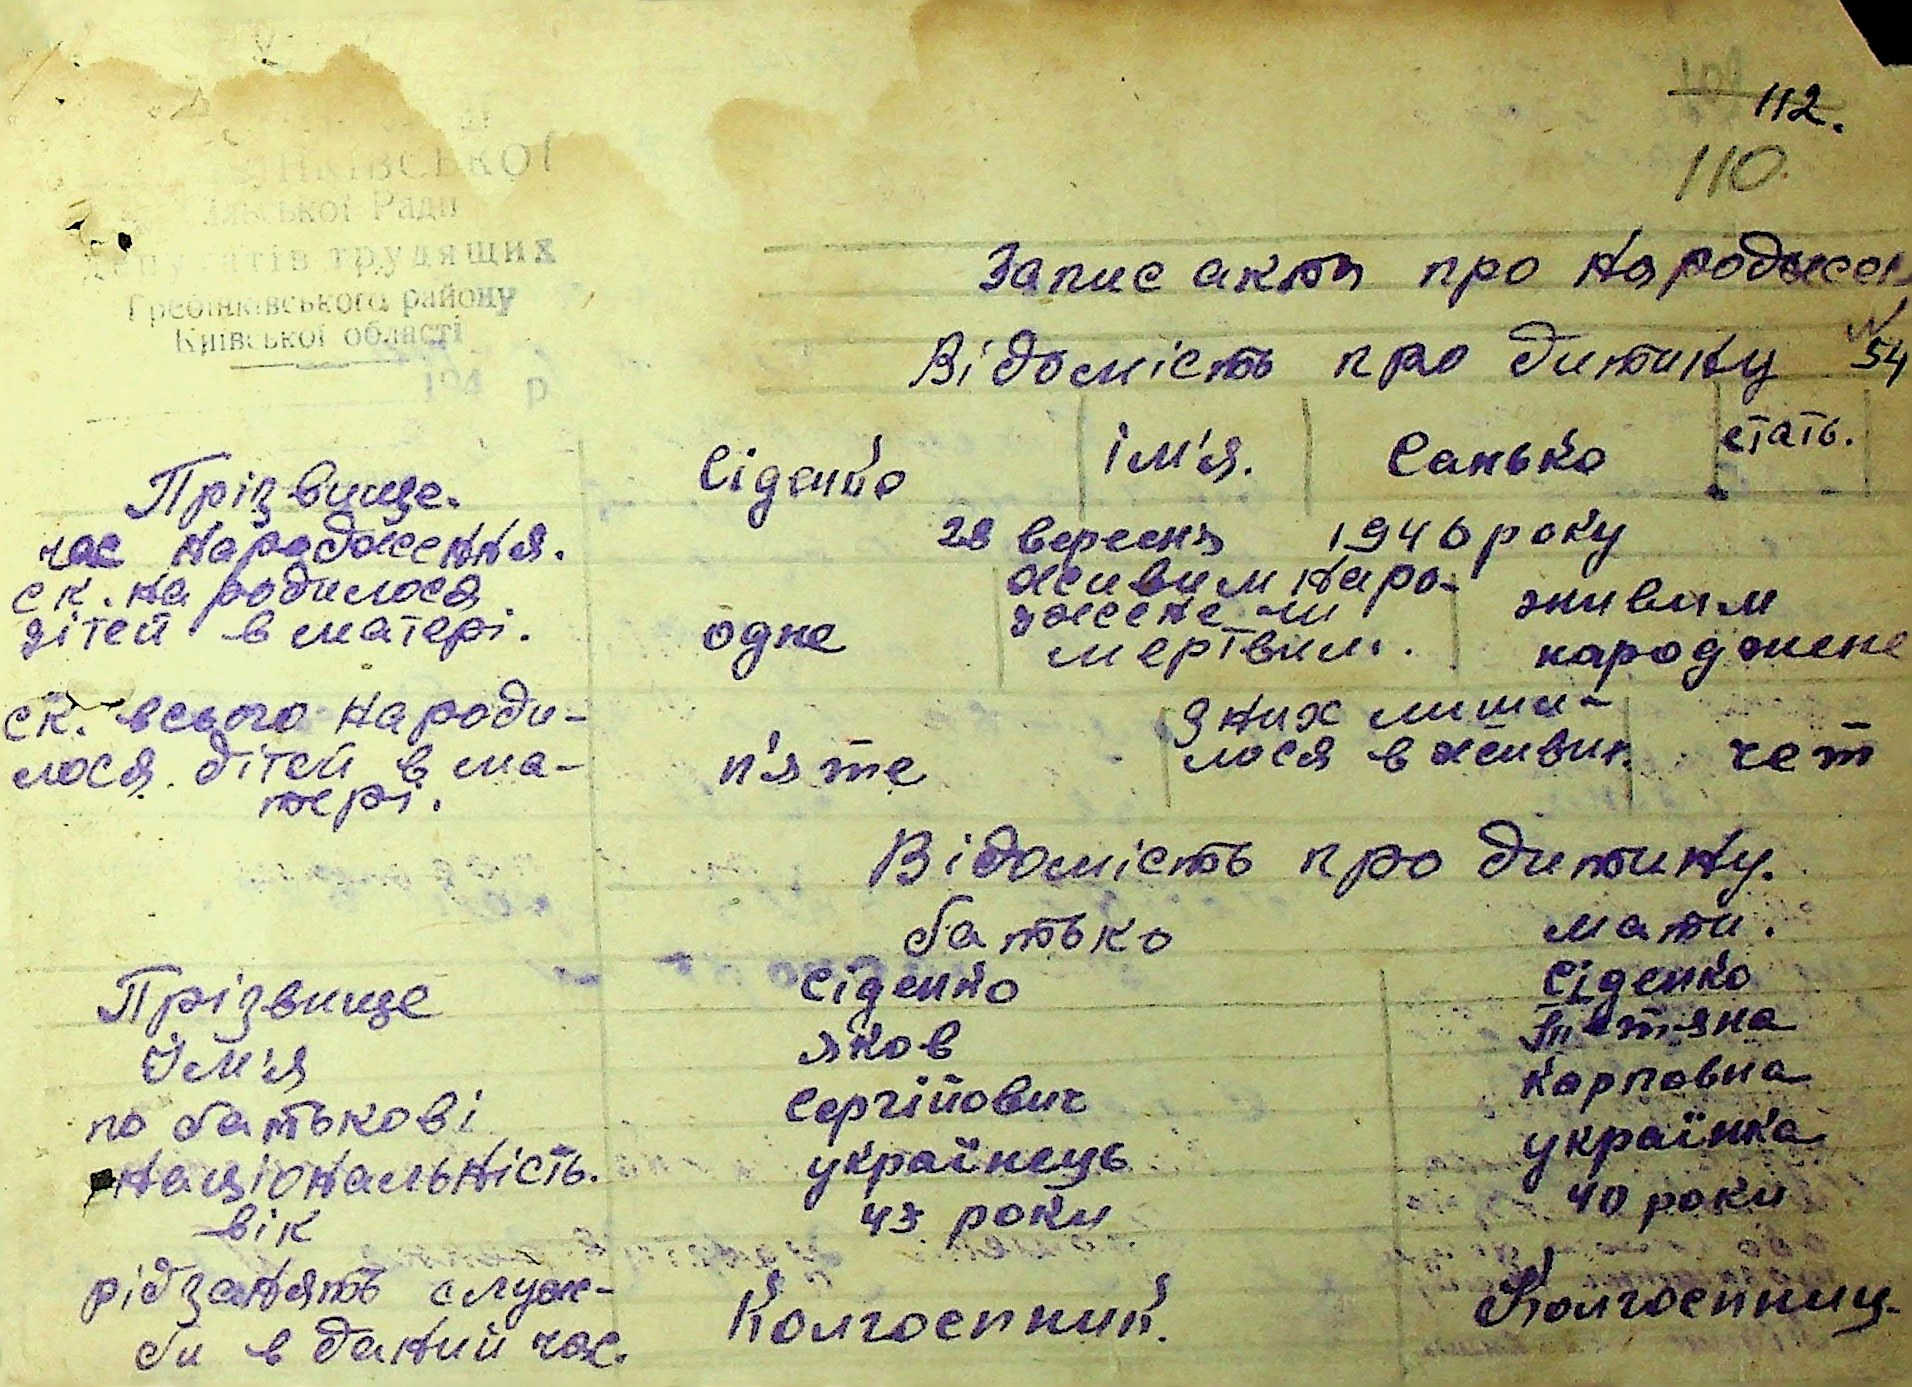 112.
110.
Ради
депутатів трудящих
Гребінківського району
Київської області
194 р
Запис акта про народжен
Відомість про дитину № 54
Прізвище. Сіденко ім'я. Санько стать.
час народження. 28 вересня 1946 року
ск. народилося дітей в матері. одне живим народжене чи мертвим. живим народжене
ск. всього народи-
лося дітей в ма-
тері. п'яте з них лиши-
лося в живих. чет
Відомість про дитину.
батько мати.
Прізвище Сіденко Сіденко
Ім'я яков Тетяна
по батькові Сергійович Карповна
національність. українець українка
вік 43 роки 40 роки
рід занять служ-
би в даний час. Колгоспник. Колгоспниц.